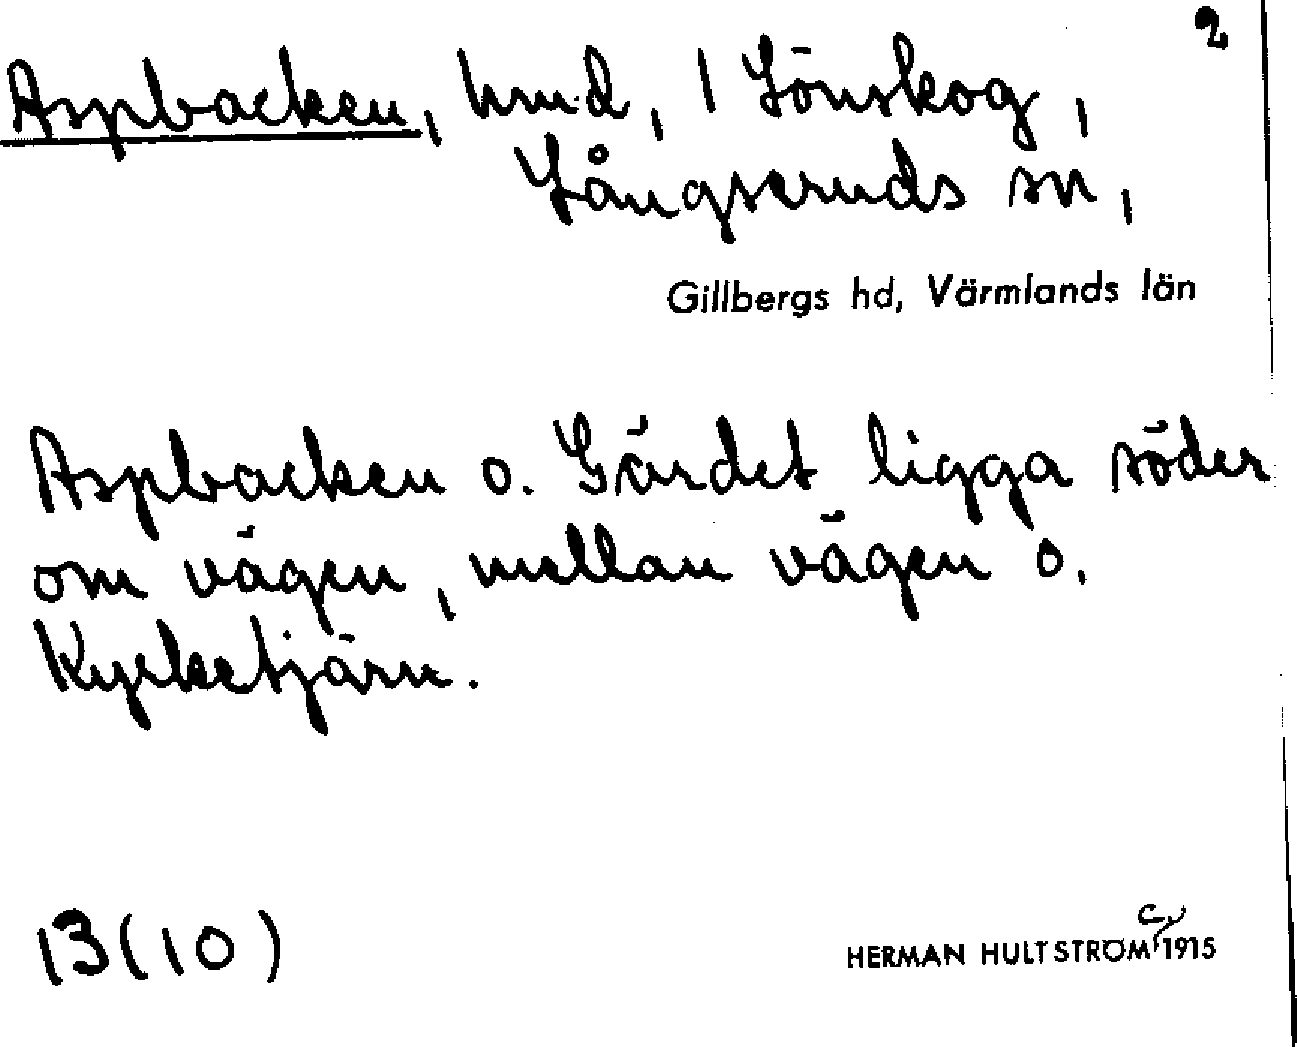 2
Aspbacken, hmd, 1 Lönskog,
Långseruds sn,
Gillbergs hd, Värmlands län
Aspbacken o. Gärdet ligga söder
om vägen, mellan vägen o.
Kycketjärn.
13(10)
HERMAN HULTSTRÖM c. 1915